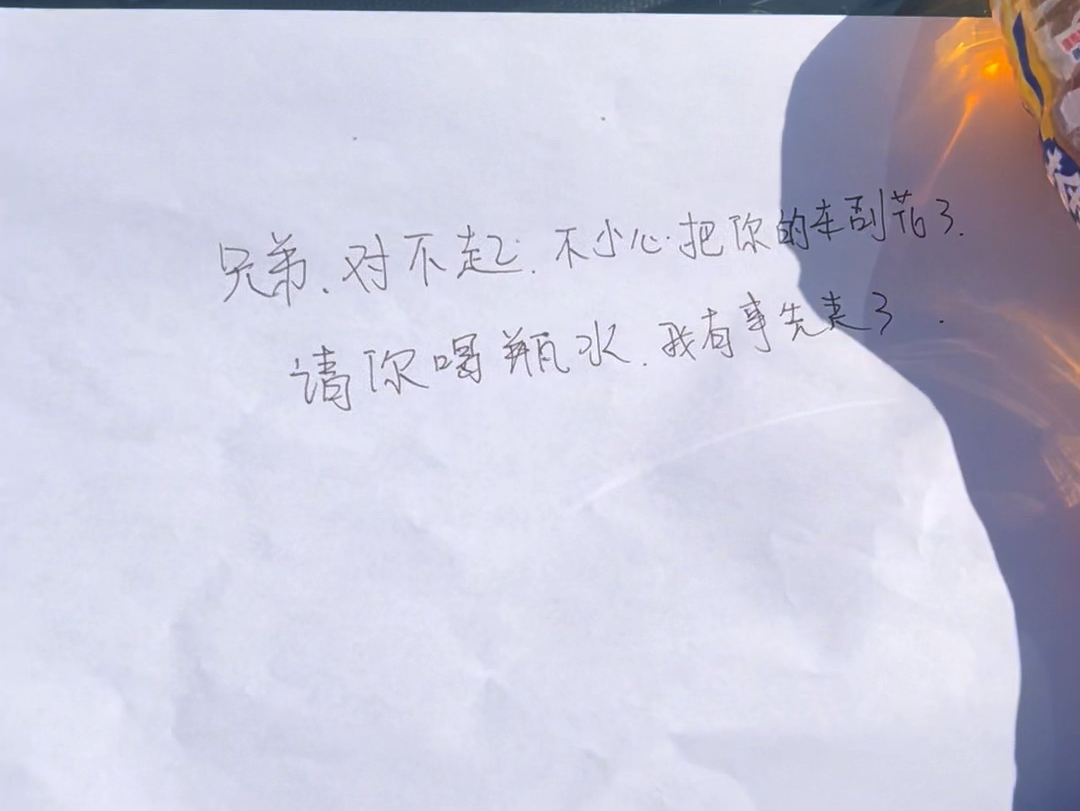 兄弟.对不起.不小心把你的车刮花了.
请你喝瓶水.我有事先走了.